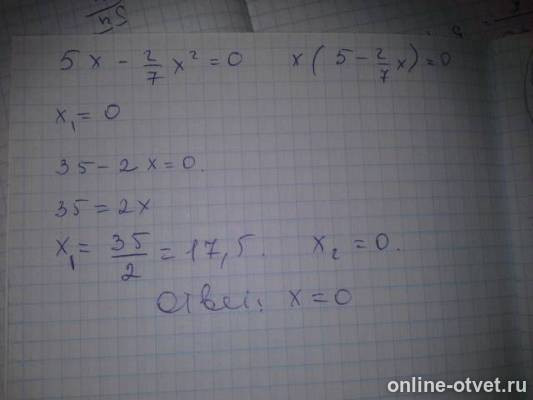 5x - 2/7 x² = 0    x(5 - 2/7 x) = 0
x₁ = 0
35 - 2x = 0.
35 = 2x
x₁ = 35/2 = 17,5.    x₂ = 0.
Ответ: x = 0
online-otvet.ru